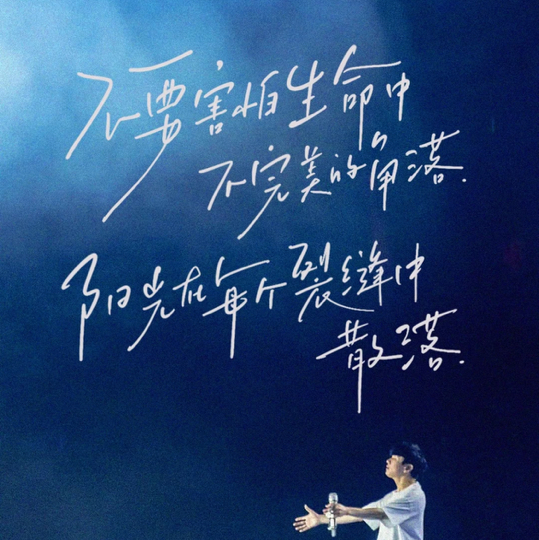 不要害怕生命中
不完美的角落.
阳光在每个裂缝中
散落.